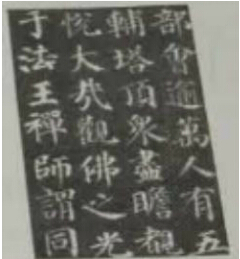 部會逾萬人有五
輔塔頂衆盡瞻覩
悅大哉觀佛之光
于法王禪師謂同